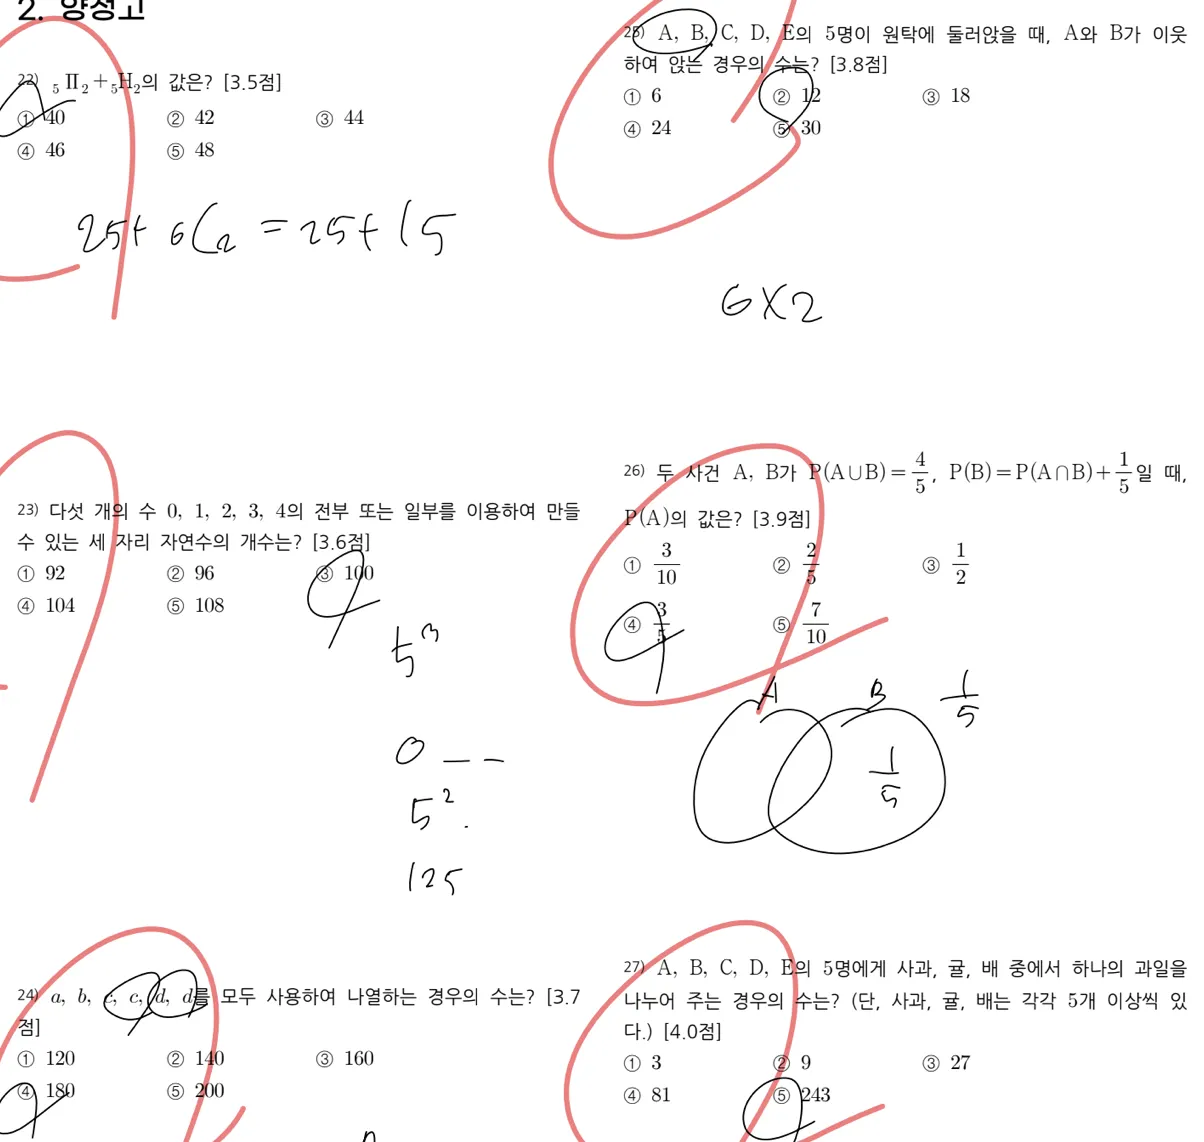 2. 양정고
22) ₅Π₂+₅H₂의 값은? [3.5점]
① 40 ② 42 ③ 44
④ 46 ⑤ 48
25+ ₆C₂ = 25+15
23) 다섯 개의 수 0, 1, 2, 3, 4의 전부 또는 일부를 이용하여 만들
수 있는 세 자리 자연수의 개수는? [3.6점]
① 92 ② 96 ③ 100
④ 104 ⑤ 108
5³
0 _ _
5².
125
24) a, b, c, c, d, d를 모두 사용하여 나열하는 경우의 수는? [3.7
점]
① 120 ② 140 ③ 160
④ 180 ⑤ 200
25) A, B, C, D, E의 5명이 원탁에 둘러앉을 때, A와 B가 이웃
하여 앉는 경우의 수는? [3.8점]
① 6 ② 12 ③ 18
④ 24 ⑤ 30
6×2
26) 두 사건 A, B가 P(A∪B)=4/5, P(B)=P(A∩B)+1/5일 때,
P(A)의 값은? [3.9점]
① 3/10 ② 2/5 ③ 1/2
④ 3/5 ⑤ 7/10
A B 1/5
1/5
27) A, B, C, D, E의 5명에게 사과, 귤, 배 중에서 하나의 과일을
나누어 주는 경우의 수는? (단, 사과, 귤, 배는 각각 5개 이상씩 있
다.) [4.0점]
① 3 ② 9 ③ 27
④ 81 ⑤ 243